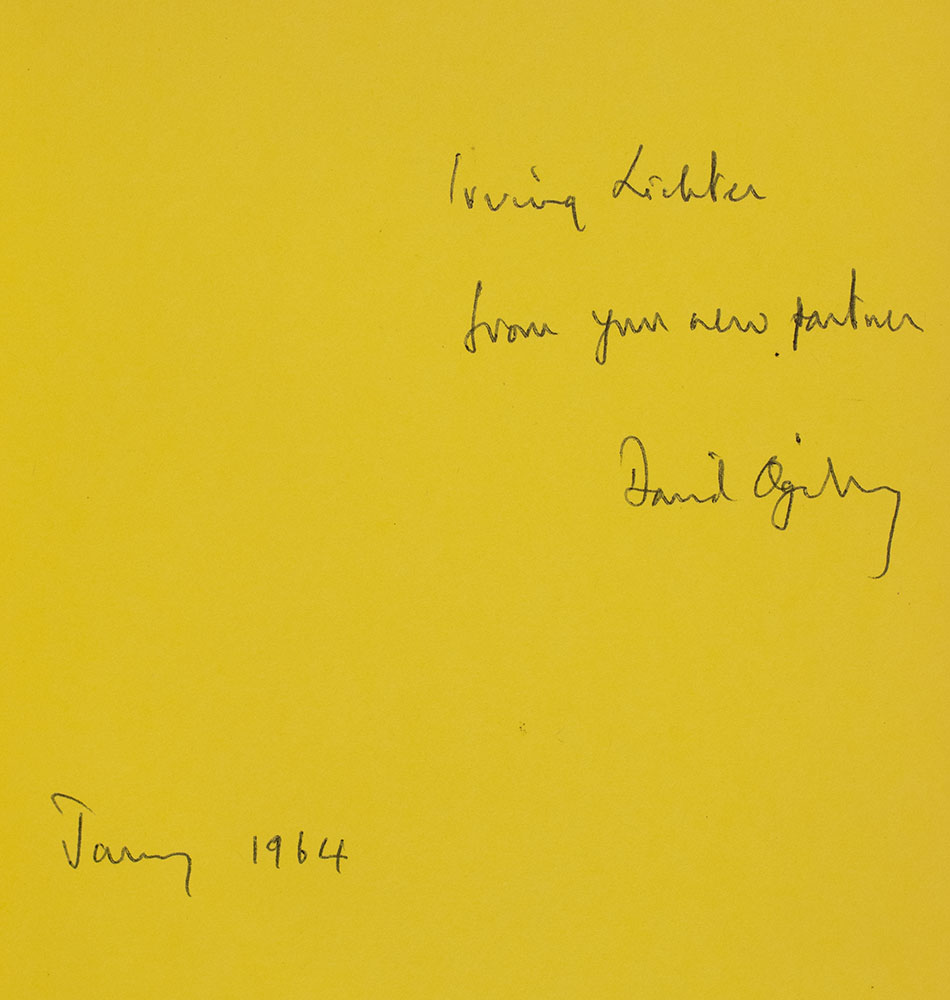 Irving Lichter
from your new partner
David Ogilvy
Jany 1964